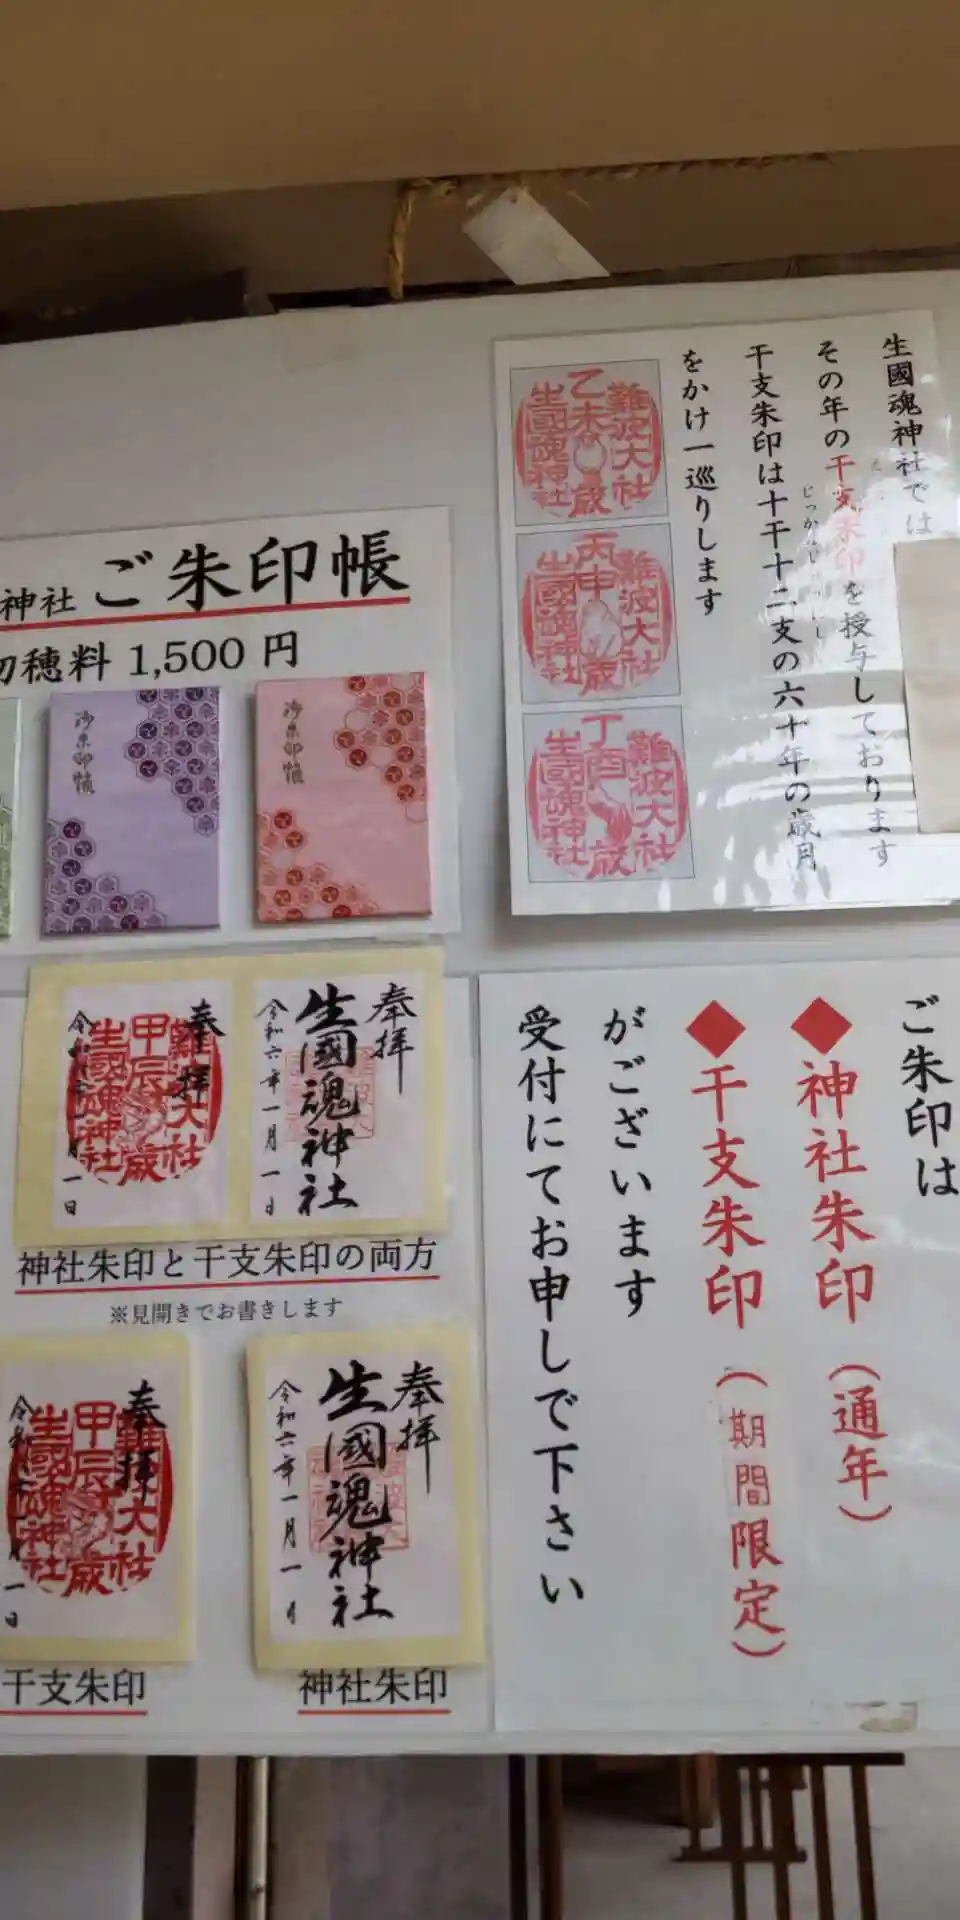 生國魂神社では
その年の干支朱印を授与しております
干支朱印は十干十二支の六十年の歳月
をかけ一巡りします
難波大社
乙未歳
生國魂神社
難波大社
丙申歳
生國魂神社
難波大社
丁酉歳
生國魂神社
神社 ご朱印帳
初穂料 1,500 円
御朱印帳
御朱印帳
奉拝
大社
甲辰歳
生國魂神社
奉拝
生國魂神社
令和六年一月一日
神社朱印と干支朱印の両方
※見開きでお書きします
奉拝
大社
甲辰歳
生國魂神社
干支朱印
奉拝
生國魂神社
令和六年一月一
神社朱印
ご朱印は
◆神社朱印(通年)
◆干支朱印(期間限定)
がございます
受付にてお申しで下さい